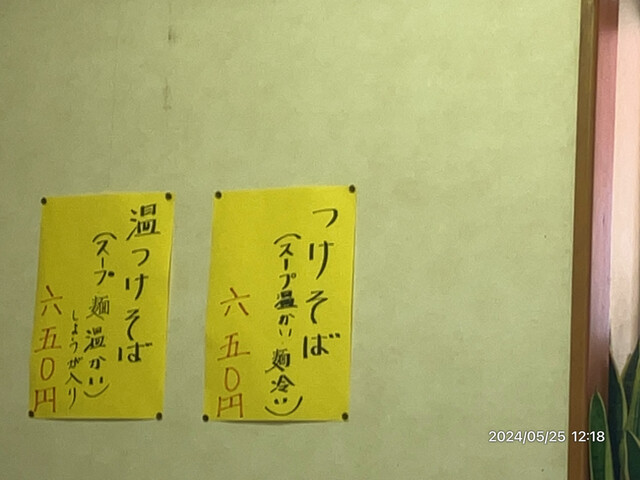 つけそば
(スープ温かい 麺冷い)
六五〇円
温つけそば
(スープ 麺 温かい)
しょうが入り
六五〇円
2024/05/25 12:18